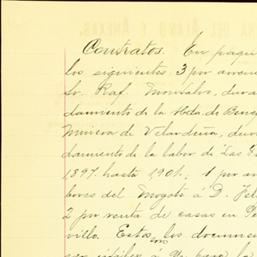 Contratos. En paque
los siguientes, 3 por arren
Sr. Raf. Montalvo, dura
damiento de la Hda. de Bene
Minera de Velardeña, dur
damiento de la labor de "Las
1897 hasta 1901; 1 por ar
bores del Mogote á D. Fel
2 por venta de casas en Pe
villo. Estos los documen